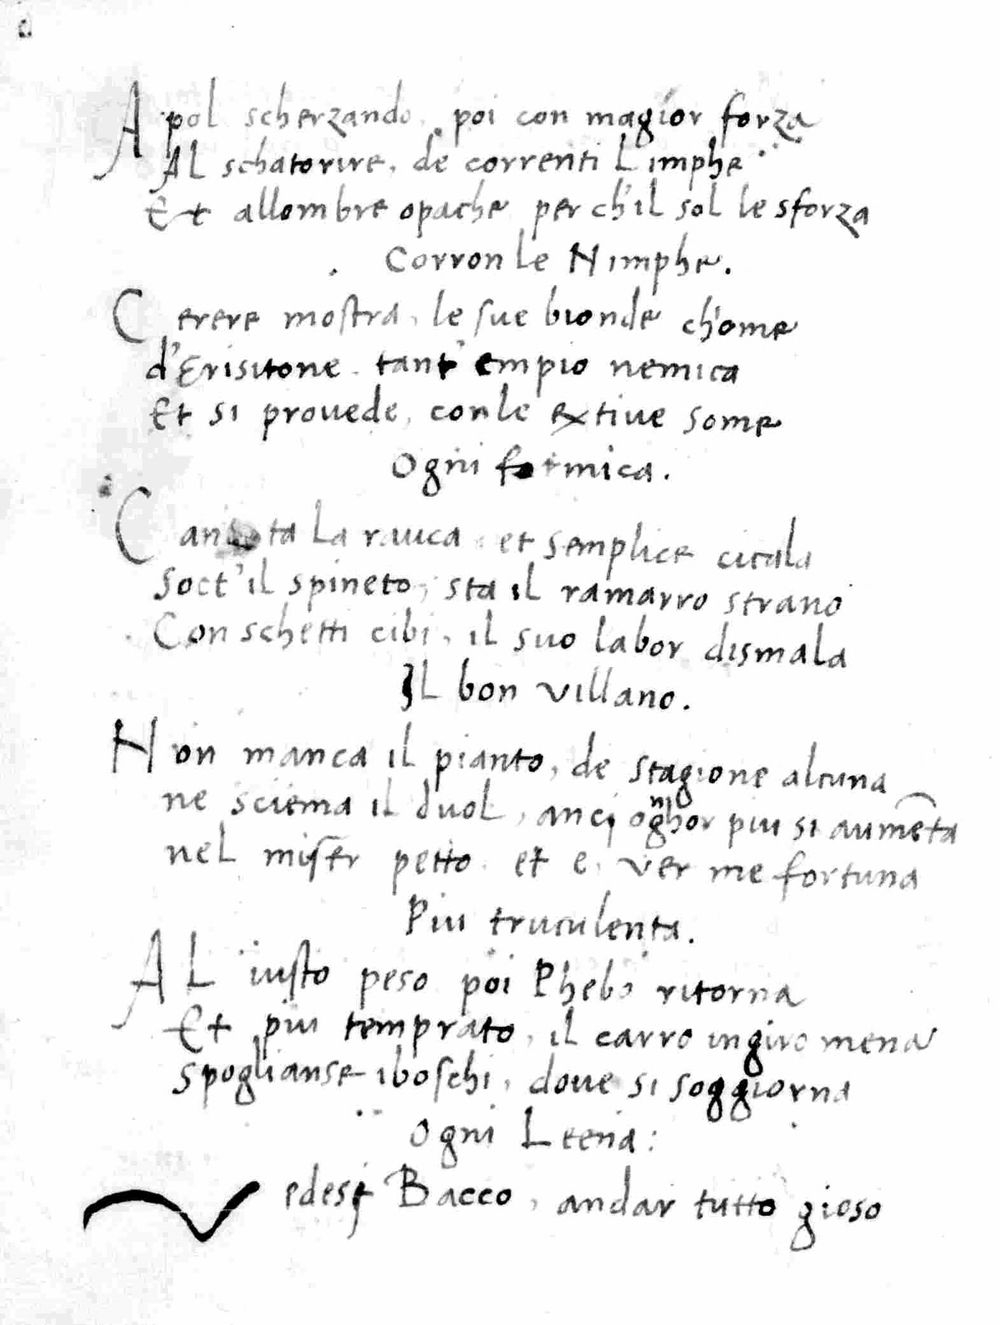 Apol scherzando, poi con magior forza
Al schatorire, de correnti Limphe
Et allombre opache per ch'il sol le sforza
Corron le Nimphe.
Cerere mostra, le sue bionde ch'ome
d'Erisitone tant' empio nemica
Et si prouede, con le extiue some
Ogni formica.
Canta La rauca et semplice cicala
Soct'il spineto, sta il ramarro strano
Con schetti cibi, il suo labor dismala
Il bon villano.
Non manca il pianto, de stagione alcuna
ne sciema il duol, anci ognhor piu si aumēta
nel miser petto et e, ver me fortuna
Piu truculenta.
Al iusto peso poi Phebo ritorna
Et piu temprato, il carro in giro mena
Spoglianse i boschi, doue si soggiorna
Ogni Leena:
Vedesi Bacco, andar tutto gioso